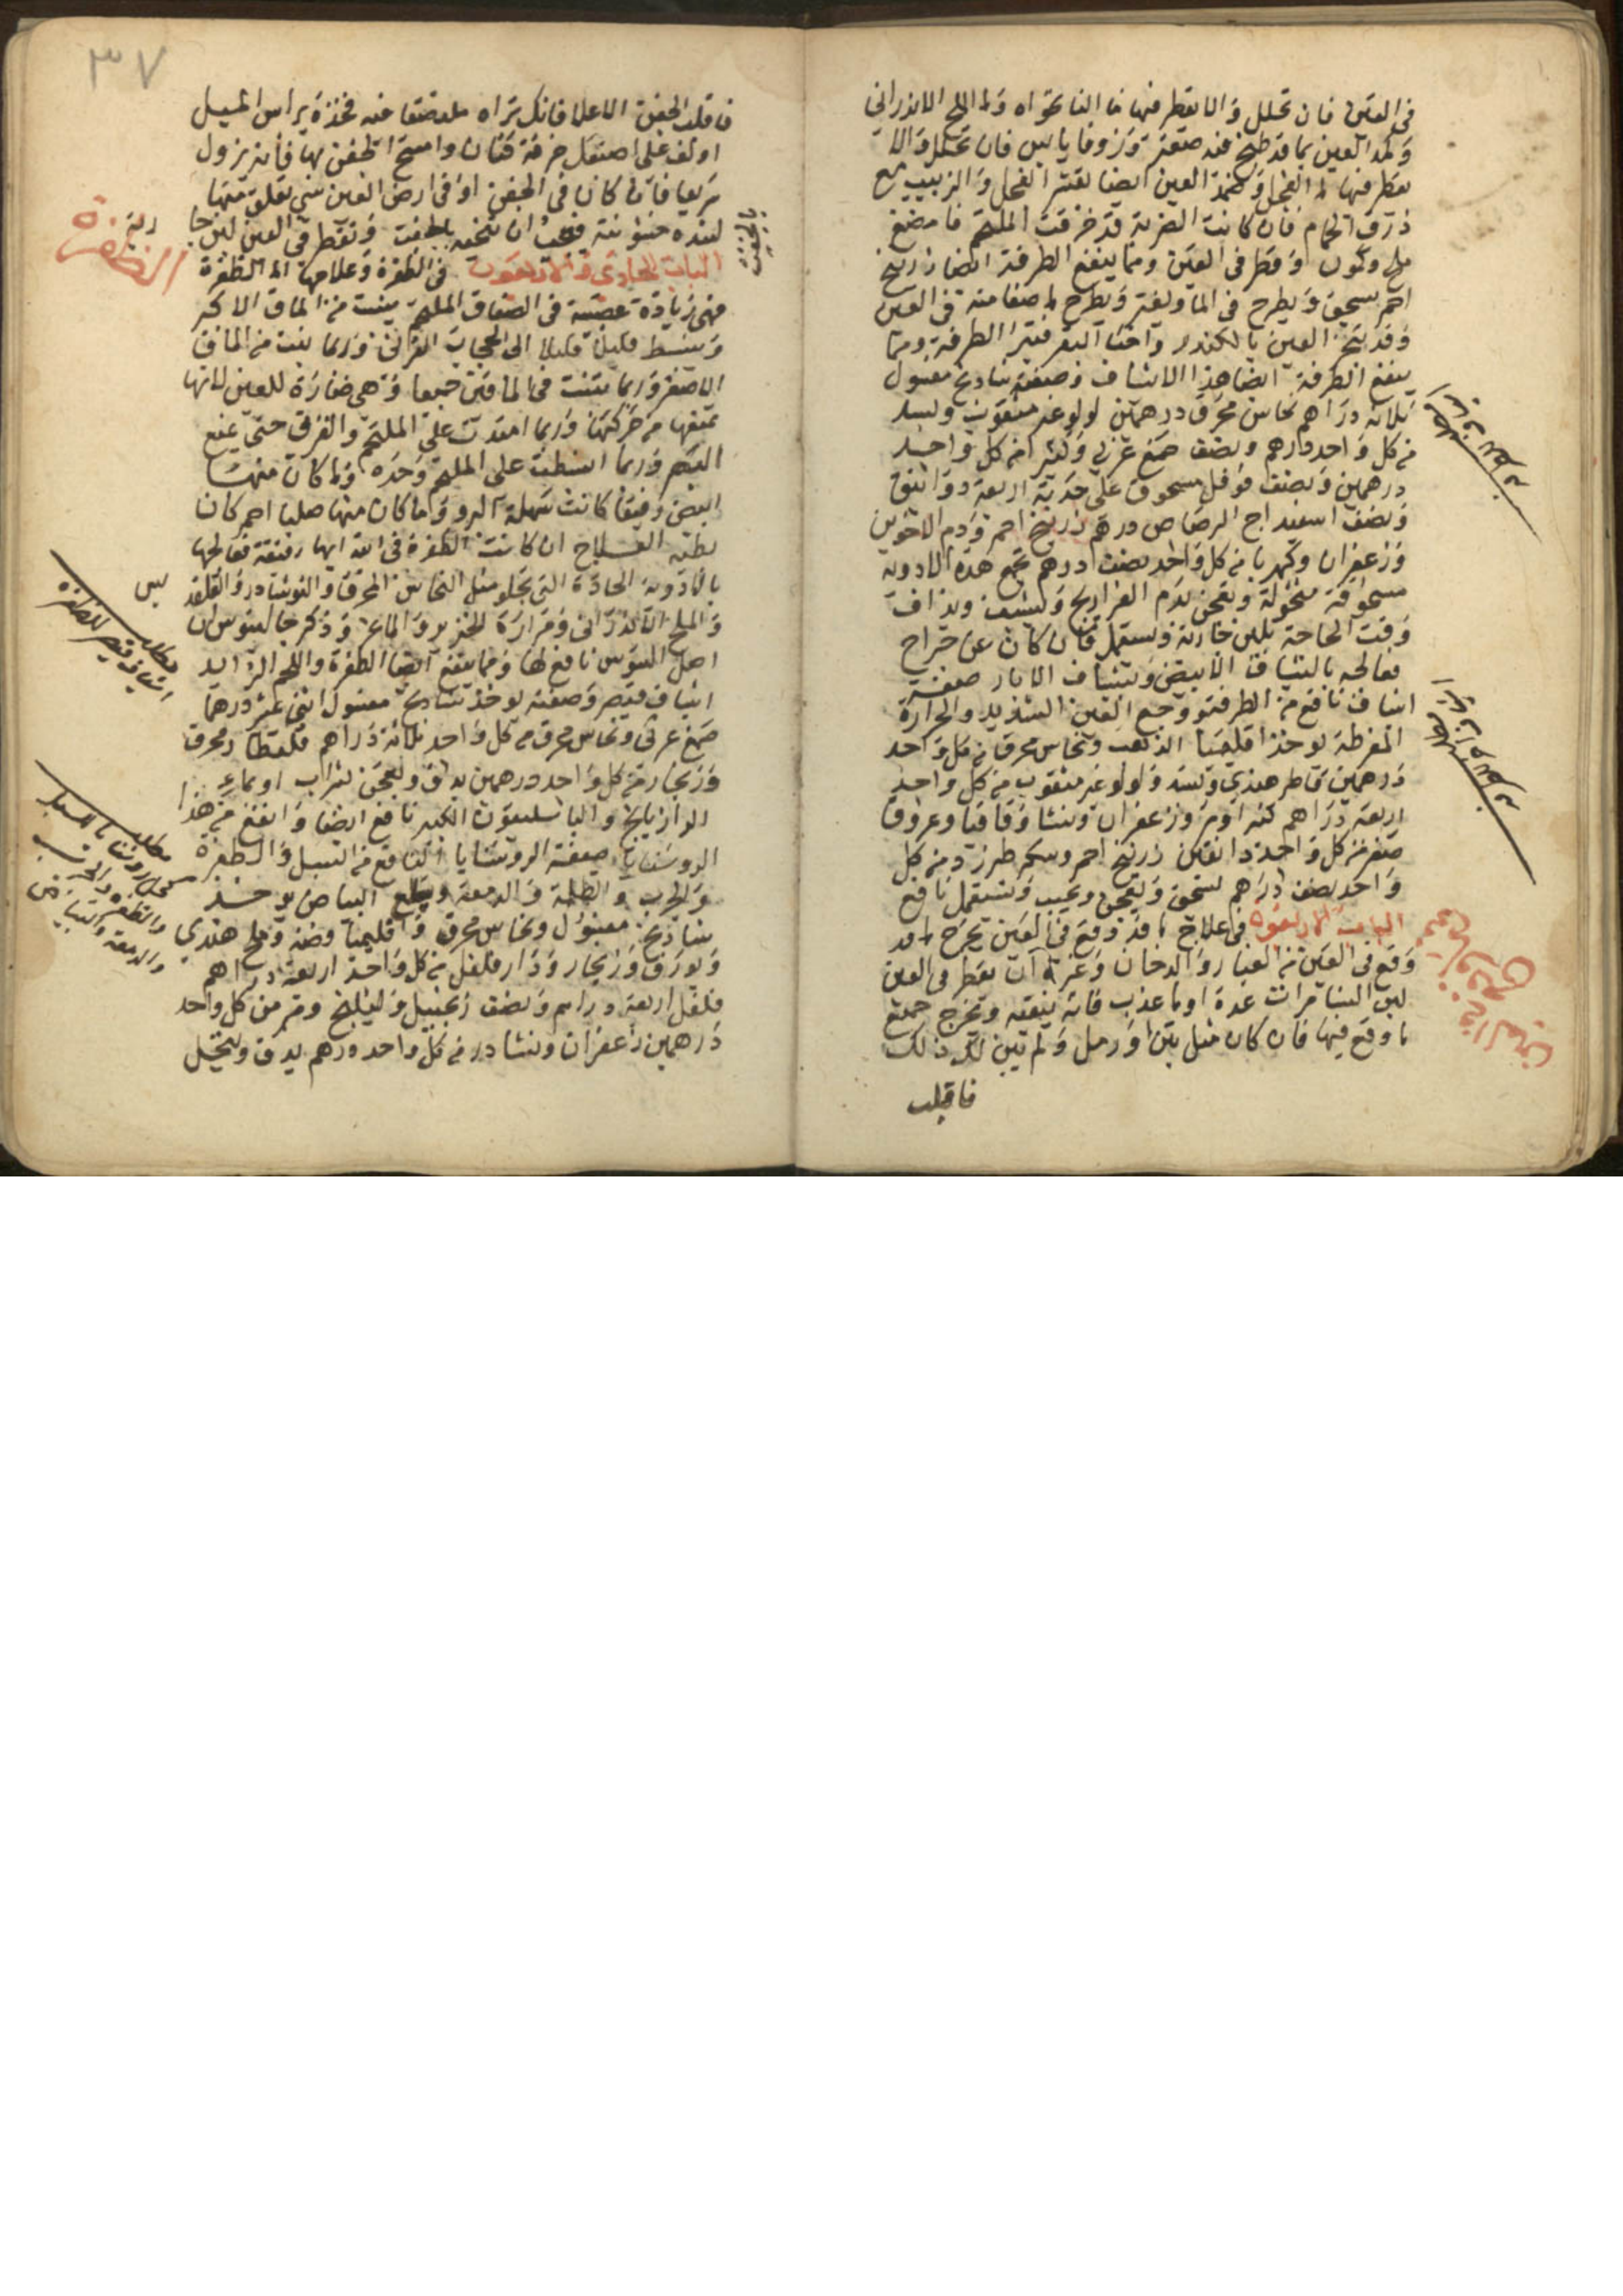 في العين فان تحلل والا يقطر فيها ما النانخواه وما الملح الاندراني
وكمد العين بما قد طبخ فيه صعتر وزوفا يابس فان تحلل والا
يقطر فيها ما الفجل وضمد العين ايضا بقشر الفجل والزبيب مع
ذرق الحمام فان كانت الضربة قد خرقت الملتحم فامضغ
ملح وكمون وقطر في العين ومما ينفع الطرفة ايضا زرنيخ
احمر يسحق ويطرح في الما وليغتر ويطرح ما صفا منه في العين
وقد تبخر العين بالكندر واخثا البقر فتبرا الطرفة ومما
ينفع الطرفة ايضا هذا الاشياف وصفته شادنج مغسول
ثلاثة دراهم نحاس محرق درهمين لولو غير مثقوب وبسد
من كل واحد درهم ونصف صمغ عربي وكثيرا من كل واحد
درهمين ونصف فوفل مسحوق على حدته اربعة دوانق
ونصف اسفيداج الرصاص درهم زرنيخ احمر ودم الاخوين
وزعفران وكهربا من كل واحد نصف درهم تجمع هذه الادوية
مسحوقة منخولة وتعجن بدم الفراريج وليشيف ويداف
وقت الحاجة بلبن جارية ويستعمل فان كان عن جراح
فعالجه بالشياف الابيض وبشياف الابار صفة
اشياف نافع من الطرفة ووجع العين الشديد والحرارة
المفرطة يوخذ اقليميا الذهب ونحاس محرق من كل واحد
درهمين قاطر هندي وبسد ولولو غير مثقوب من كل واحد
اربعة دراهم كثيرا ومر وزعفران ونشا وقاقيا وعروق
صفر من كل واحد دانقين زرنيخ احمر وسكر طبرزد من كل
واحد نصف درهم يسحق ويعجن ويحبب ويستعمل نافع
الباب الاربعون في علاج ما قد وقع في العين يخرج ما قد
وقع في العين من الغبار والدخان وغيره ان يقطر في العين
لبن النسا مرات عدة او ما عذب فانه ينقيه ويخرج جميع
ما وقع فيها فان كان مثل تبن او رمل ولم تبين لك ذلك
فاقلب
٣٧
فاقلب الجفن الاعلا فانك تراه ملتصقا فيه فخذه براس الميل
او لف على اصبعك خرقة كتان وامسح الجفن بها فانه يزول
سريعا فاما كان في الجفن او في ارض العين شي تعلق منها
لشده خشونته فيجب ان تنحيه بالجفت وتقطر في العين لبن جارية
الباب الحادي والاربعون في الظفرة وعلاجها اما الظفرة
الظفرة
فهي زيادة عصبية في الصفاق الملتحم ينبت من الماق الاكبر
وينبسط قليلا قليلا الى الحجاب القرني وربما ينبت من الماق
الاصغر وربما تنبت في الماقين جميعا وهي ضارة للعين لانها
تمنعها من حركتها وربما امتدت على الملتحم والقرني حتى تمنع
البصر وربما انبسطت على الملتحم وحده وما كان منها
ابيض رقيقا كانت سهلة البرو وما كان منها صلبا احمر كان
بطئه العلاج ان كانت الظفرة في ابتدايها رقيقة فعالجها
بالادوية الحادة التي تجلو مثل النحاس المحرق والنوشادر والقلقديس
والملح الاندراني ومرارة الخنزير والماعز وذكر جالينوس ان
اصل السوس نافع لها ومما ينفع ايضا الظفرة واللحم الزايد
اشياف قيصر وصفته يوخذ شادنج مغسول اثني عشر درهما
مطلب
اشياف قيصر للظفرة
صمغ عربي ونحاس محرق من كل واحد ثلاثة دراهم قلقطار محرق
وزنجار من كل واحد درهمين يدق ويعجن بشراب او بماء
الرازيانج والباسليقون الكبير نافع ايضا وانفع من هذا
الروشنايا صفة الروشنايا النافع من السبل والظفرة
والجرب والظلمة والدمعة ويقلع البياض يوخذ
شادنج مغسول ونحاس محرق واقليميا فضة وملح هندي
مطلب
كحل روشنايا للسبل
والظفرة والجرب
والدمعة والبياض
وبورق وزنجار ودار فلفل من كل واحد اربعة دراهم
فلفل اربعة دراهم ونصف زنجبيل وليلنج ومر من كل واحد
درهمين زعفران ونشادر من كل واحد درهم يدق وينخل